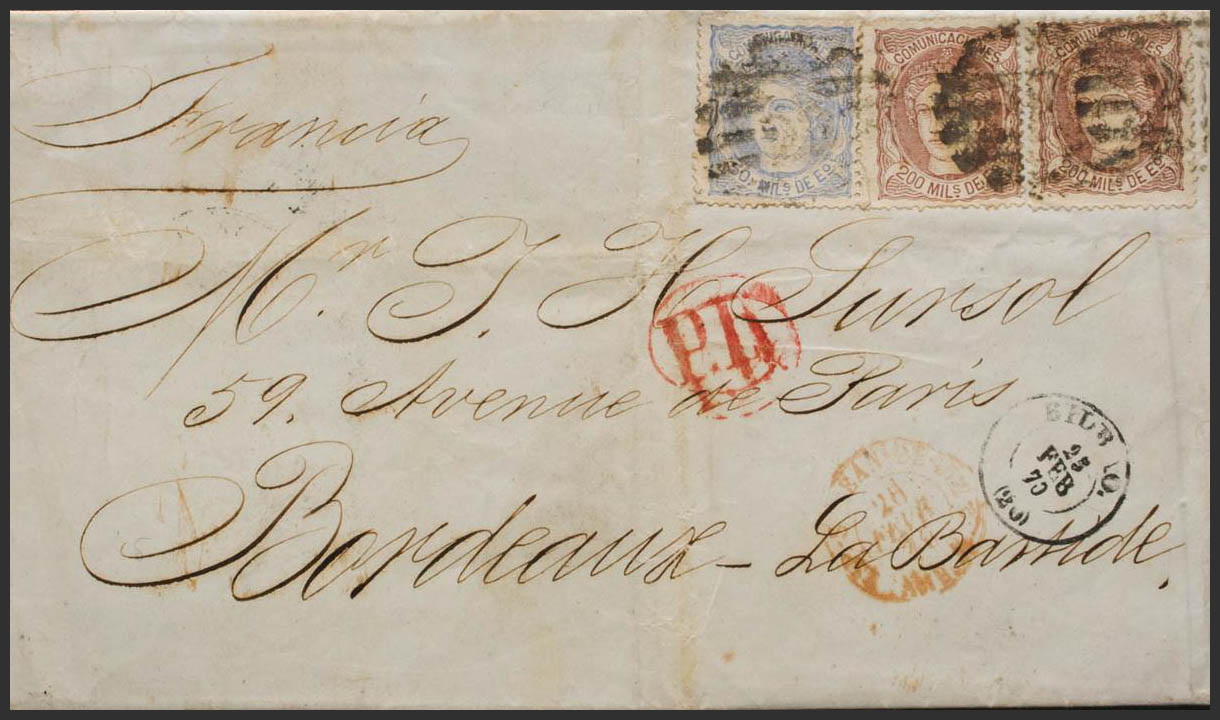 Francia
COMUNICACIONES
50 MILS DE EO
COMUNICACIONES
200 MILS DE
COMUNICACIONES
200 MILS DE EO
Mr. J. H Sursol
P.D
59. Avenue de Paris
BILBAO.
28
FEB
70
(20)
28
Bordeaux - La Bastide,